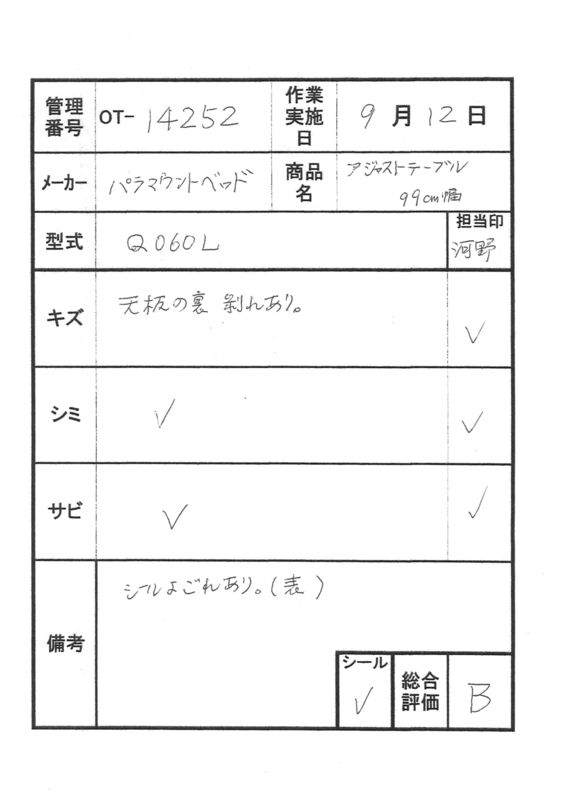 管理番号 OT- 14252 作業実施日 9月12日
メーカー パラマウントベッド 商品名 アジャストテーブル
99cm幅
型式 Q060L 担当印
河野
キズ 天板の裏 剥れあり。 ✓
シミ ✓ ✓
サビ ✓ ✓
備考 シールよごれあり。(表)
シール ✓ 総合評価 B